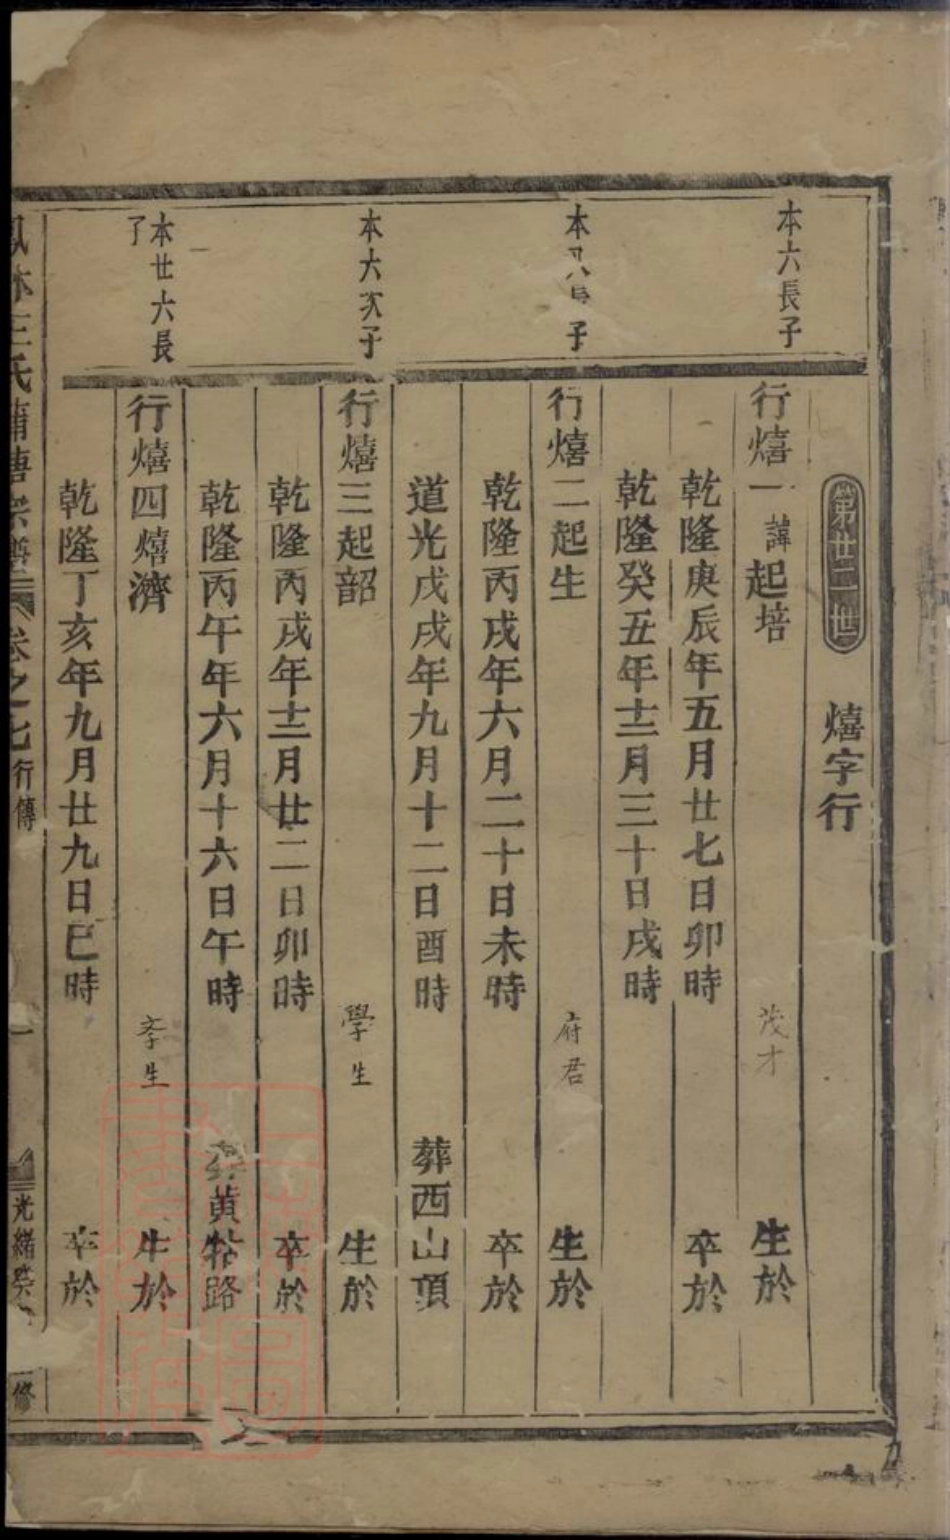 第廿二世 熺字行
本六長子
行熺一諱起培 茂才 生於
乾隆庚辰年五月廿七日卯時 卒於
乾隆癸丑年十二月三十日戌時
本 子
行熺二起生 府君 生於
乾隆丙戌年六月二十日未時 卒於
道光戊戌年九月十二日酉時 葬西山頂
本六次子
行熺三起韶 學生 生於
乾隆丙戌年十二月廿二日卯時 卒於
乾隆丙午年六月十六日午時 黄 路
本廿六長
行熺四熺濟 生 生於
乾隆丁亥年九月廿九日巳時 卒於
林王氏蒲塘宗譜 卷之七 行傳 一 光緒 修